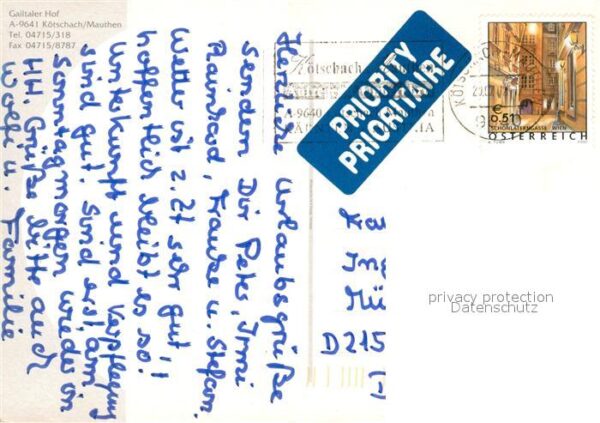 Gailtaler Hof
A-9641 Kötschach/Mauthen
Tel. 04715/318
Fax 04715/8787
Herzliche Urlaubsgrüße
senden Dir Peter, Irmi
Reinhard, Frauke u. Stefan.
Wetter ist z.Zt sehr gut,
hoffentlich bleibt es so!
Unterkunft und Verpflegung
sind gut. Sind erst am
Sonntagmorgen wieder in
HH. Grüße bitte auch
Wolfi u. Familie
PRIORITY
PRIORITAIRE
Kötschach
A-9640
€ 0,51
SCHÖNLATERNGASSE WIEN
ÖSTERREICH
D 215
privacy protection
Datenschutz